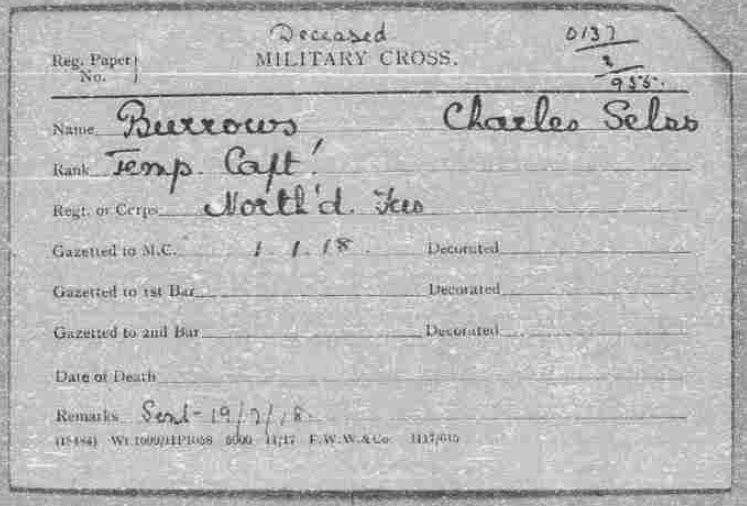 Deceased
MILITARY CROSS.
0137
3
955.
Reg. Paper
No.
Name Burrows Charles Selss
Rank Temp. Capt.
Regt. or Corps North'd. Fus
Gazetted to M.C. 1.1.18. Decorated
Gazetted to 1st Bar Decorated
Gazetted to 2nd Bar Decorated
Date of Death
Remarks Send-19/2/18.
(18484) 5000 11/17 F.W.W.&Co.